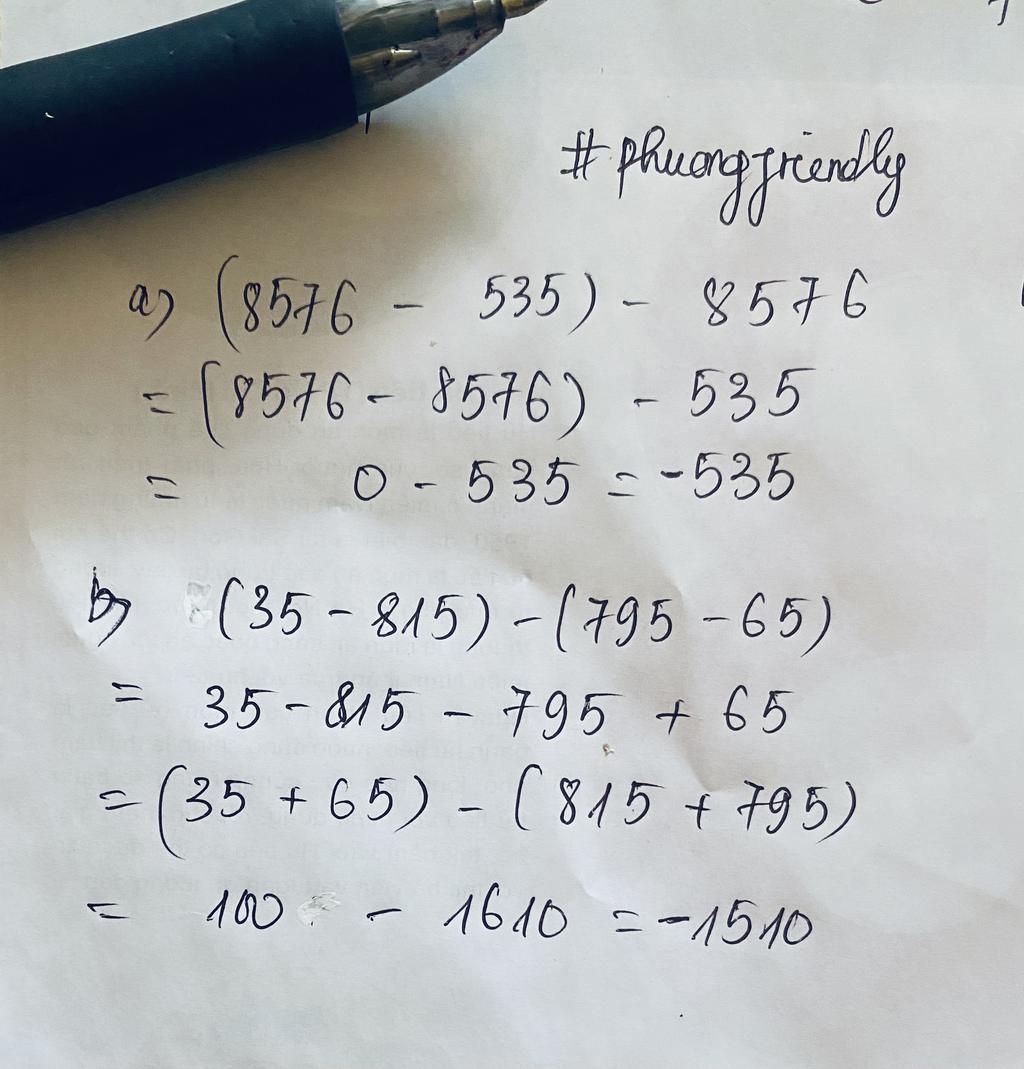 #phuongfriendly
a) (8576 - 535) - 8576
= (8576 - 8576) - 535
= 0 - 535 = -535
b) (35 - 815) - (795 - 65)
= 35 - 815 - 795 + 65
= (35 + 65) - (815 + 795)
= 100 - 1610 = -1510